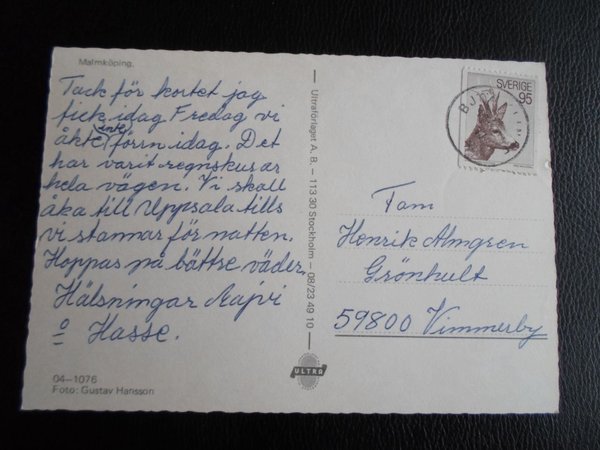 Malmköping.
Tack för kortet jag
fick idag Fredag vi
åkte inte förrn idag. Det
har varit regnskurar
hela vägen. Vi skall
åka till Uppsala tills
vi stannar för natten.
Hoppas på bättse väder.
Hälsningar Aajvi
o Hasse.
04-1076
Foto: Gustav Hansson
Ultraförlaget A. B. — 113 30 Stockholm — 08/23 49 10
ULTRA
SVERIGE
95
Fam
Henrik Almgren
Grönhult
59800 Vimmerby